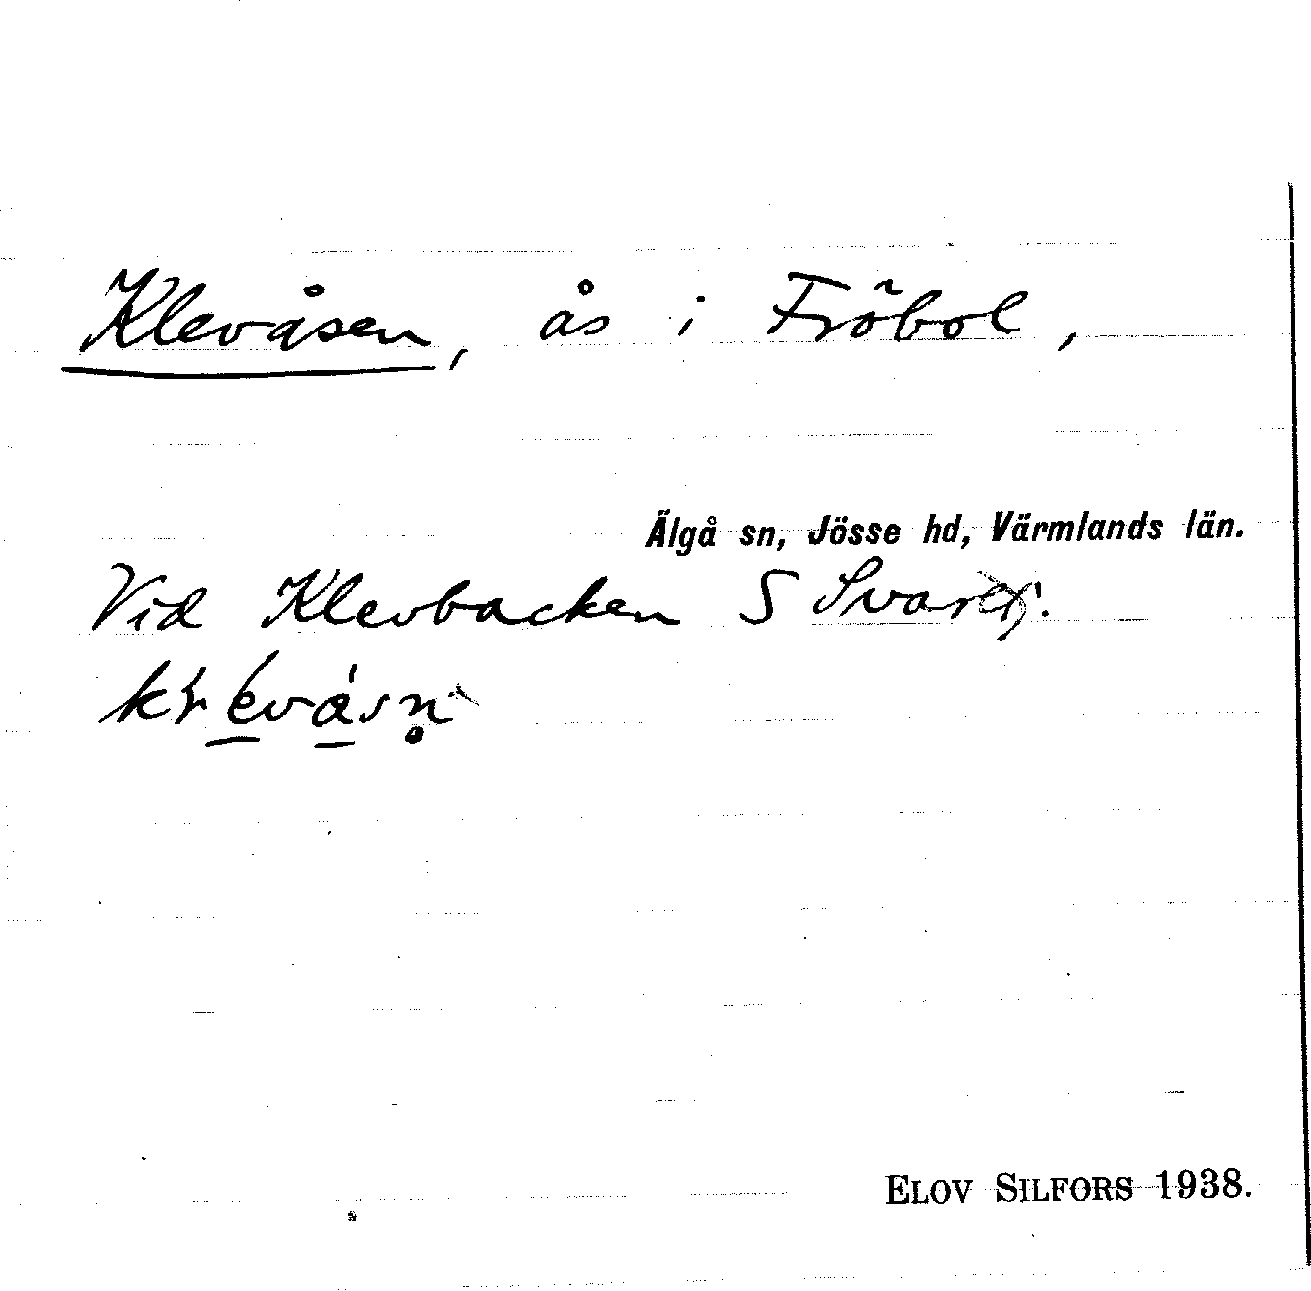 Klevåsen, ås i Fröbol,
Älgå sn, Jösse hd, Värmlands län.
Vid Klevbacken S
ELOV SILFORS 1938.